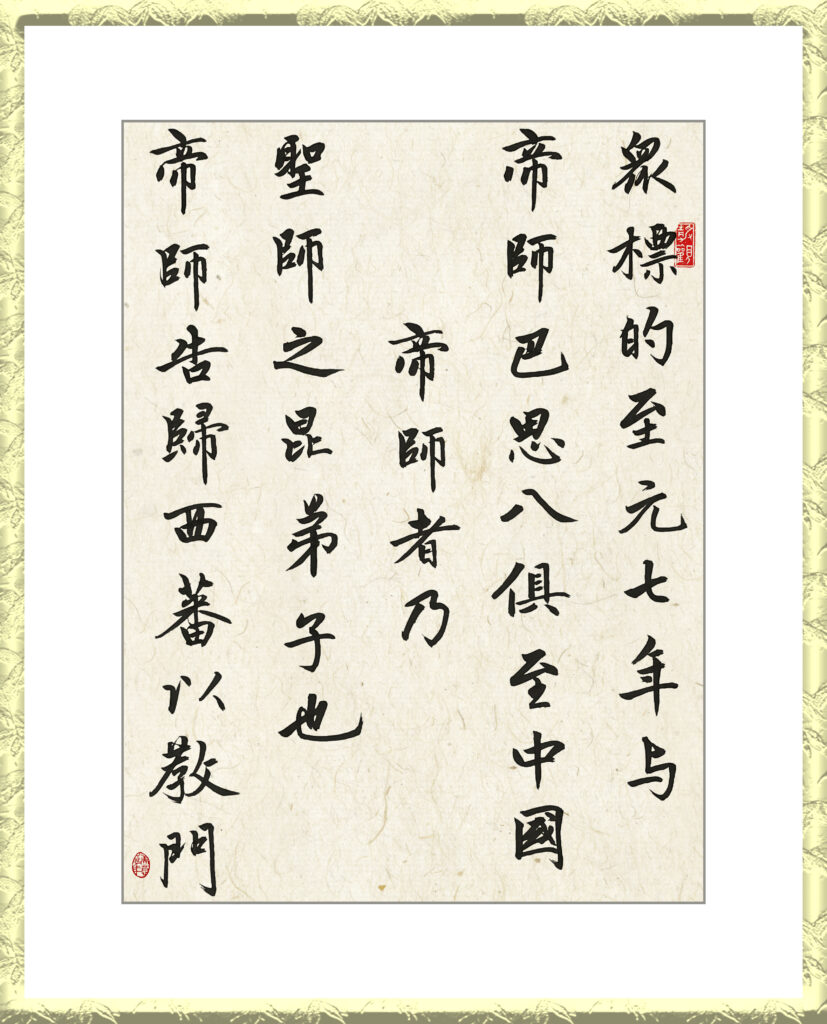 眾標的至元七年与
帝師巴思八俱至中國
帝師者乃
聖師之昆弟子也
帝師告歸西蕃以教門